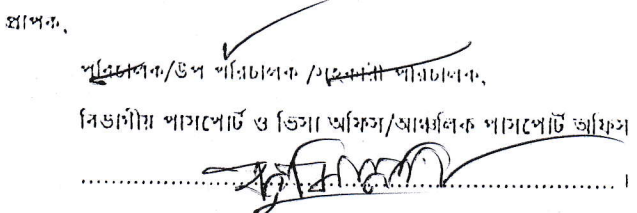 প্রাপক,
পরিচালক/উপ পরিচালক /সহকারী পরিচালক,
বিভাগীয় পাসপোর্ট ও ভিসা অফিস/আঞ্চলিক পাসপোর্ট অফিস